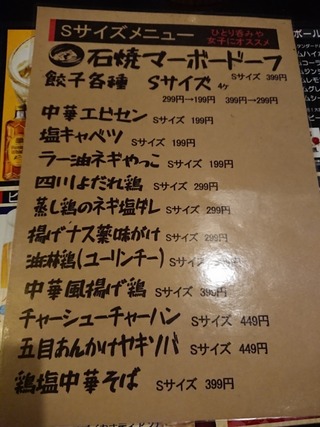 Sサイズメニュー
ひとり呑みや
女子にオススメ
石焼マーボードーフ
Sサイズ 399円
餃子各種 Sサイズ 4ケ
299円→199円 399円→299円
中華エビセン Sサイズ 199円
塩キャベツ Sサイズ 199円
ラー油ネギやっこ Sサイズ 199円
四川よだれ鶏 Sサイズ 299円
蒸し鶏のネギ塩ダレ Sサイズ 299円
揚げナス薬味がけ Sサイズ 299円
油淋鶏(ユーリンチー)
中華風揚げ鶏 Sサイズ 399円
チャーシューチャーハン Sサイズ 449円
五目あんかけヤキソバ Sサイズ 449円
鶏塩中華そば Sサイズ 399円